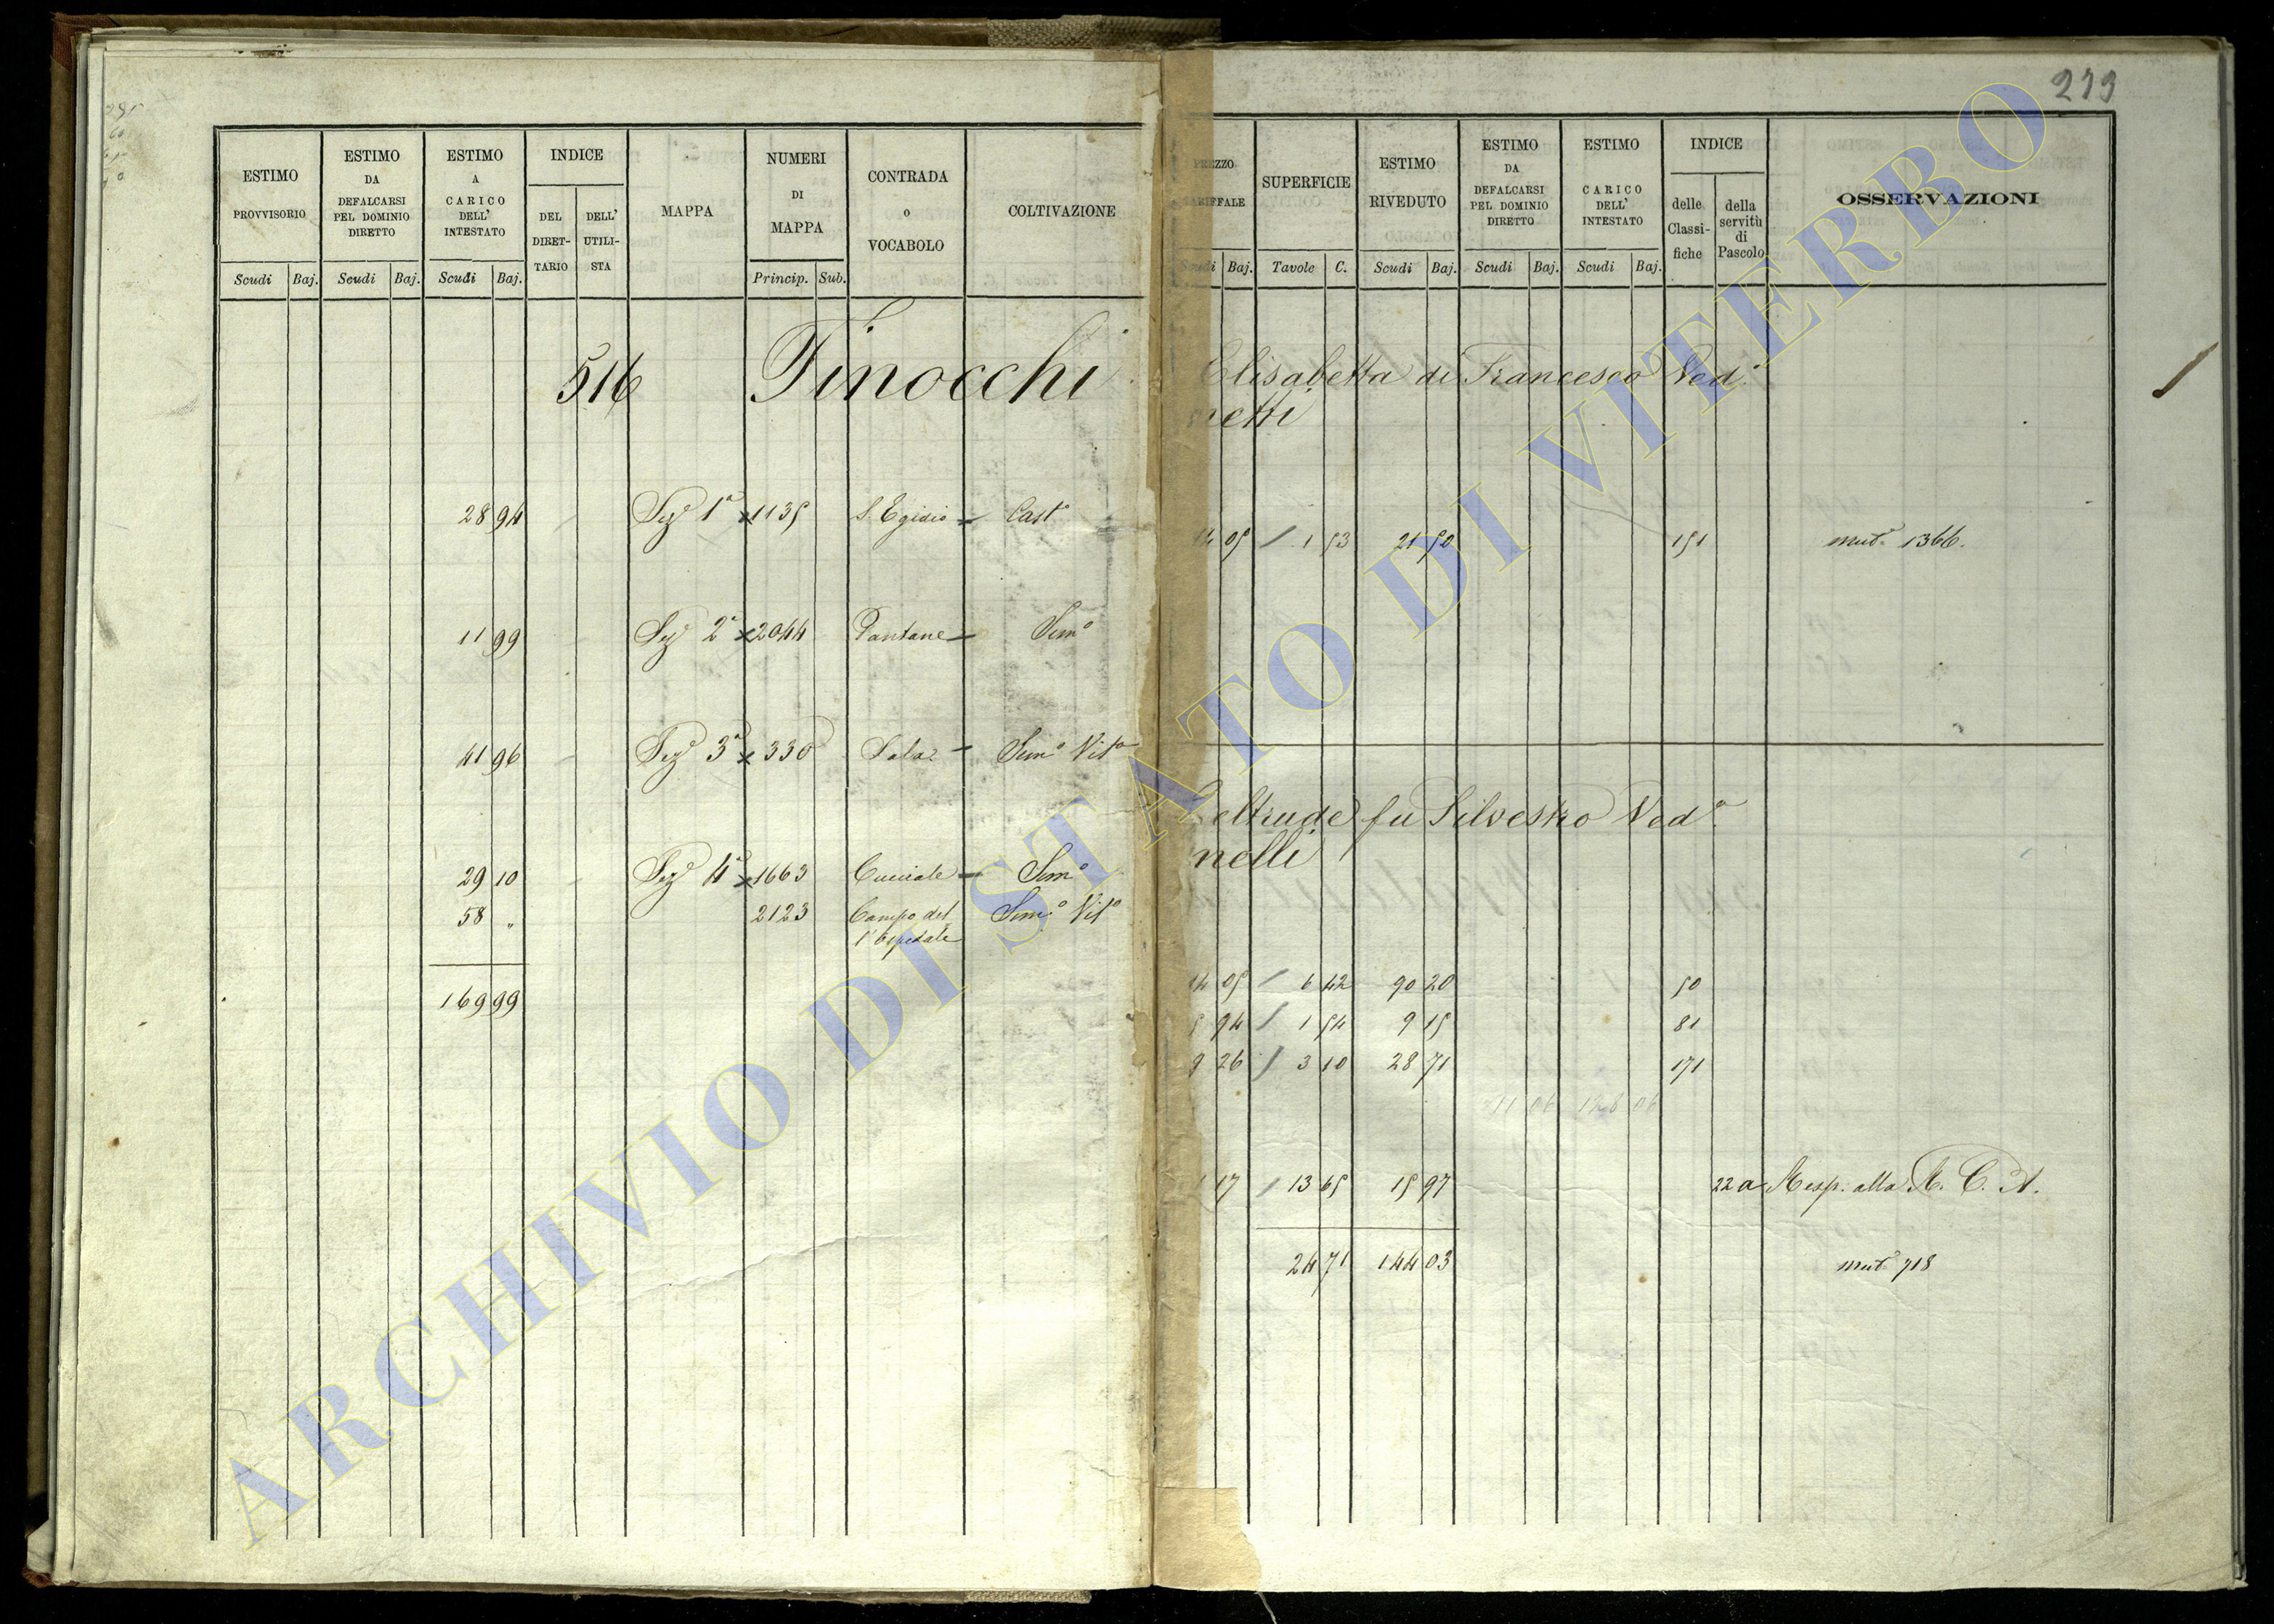 219
ESTIMO PROVVISORIO
ESTIMO DA DEFALCARSI PEL DOMINIO DIRETTO
ESTIMO A CARICO DELL' INTESTATO
INDICE
DEL DIRET-TARIO
DELL' UTILI-STA
MAPPA
NUMERI DI MAPPA
CONTRADA o VOCABOLO
COLTIVAZIONE
Scudi Baj. Scudi Baj. Scudi Baj. Princip. Sub.
516 Finocchi
28 94 Sez.e 1a x 1135 S. Egidio Cast.o
11 99 Sez.e 2a x 2044 Pantane Sem.o
41 96 Sez.e 3a x 330 Sala Sem.o Vit.o
29 10 Sez.e 4a x 1663 Sem.o
58 " 2123 Campo del Sem.o Vit.o
l'Ospedale
169 99
SUPERFICIE
ESTIMO RIVEDUTO
ESTIMO DA DEFALCARSI PEL DOMINIO DIRETTO
ESTIMO CARICO DELL' INTESTATO
INDICE
delle Classi-fiche
della servitù di Pascolo
OSSERVAZIONI
Baj. Tavole C. Scudi Baj. Scudi Baj. Scudi Baj.
Elisabetta di Francesco Ved.a
netti
14 05 1 53 21 50 151 mut.a 1366.
Geltrude fu Silvestro Ved.a
nelli
14 05 6 42 90 20 50
5 94 1 54 9 15 81
9 26 3 10 28 71 171
1 17 13 65 15 97 22 a Resp. alla R. C. A.
24 71 144 03 mut.a 718
ARCHIVIO DI STATO DI VITERBO